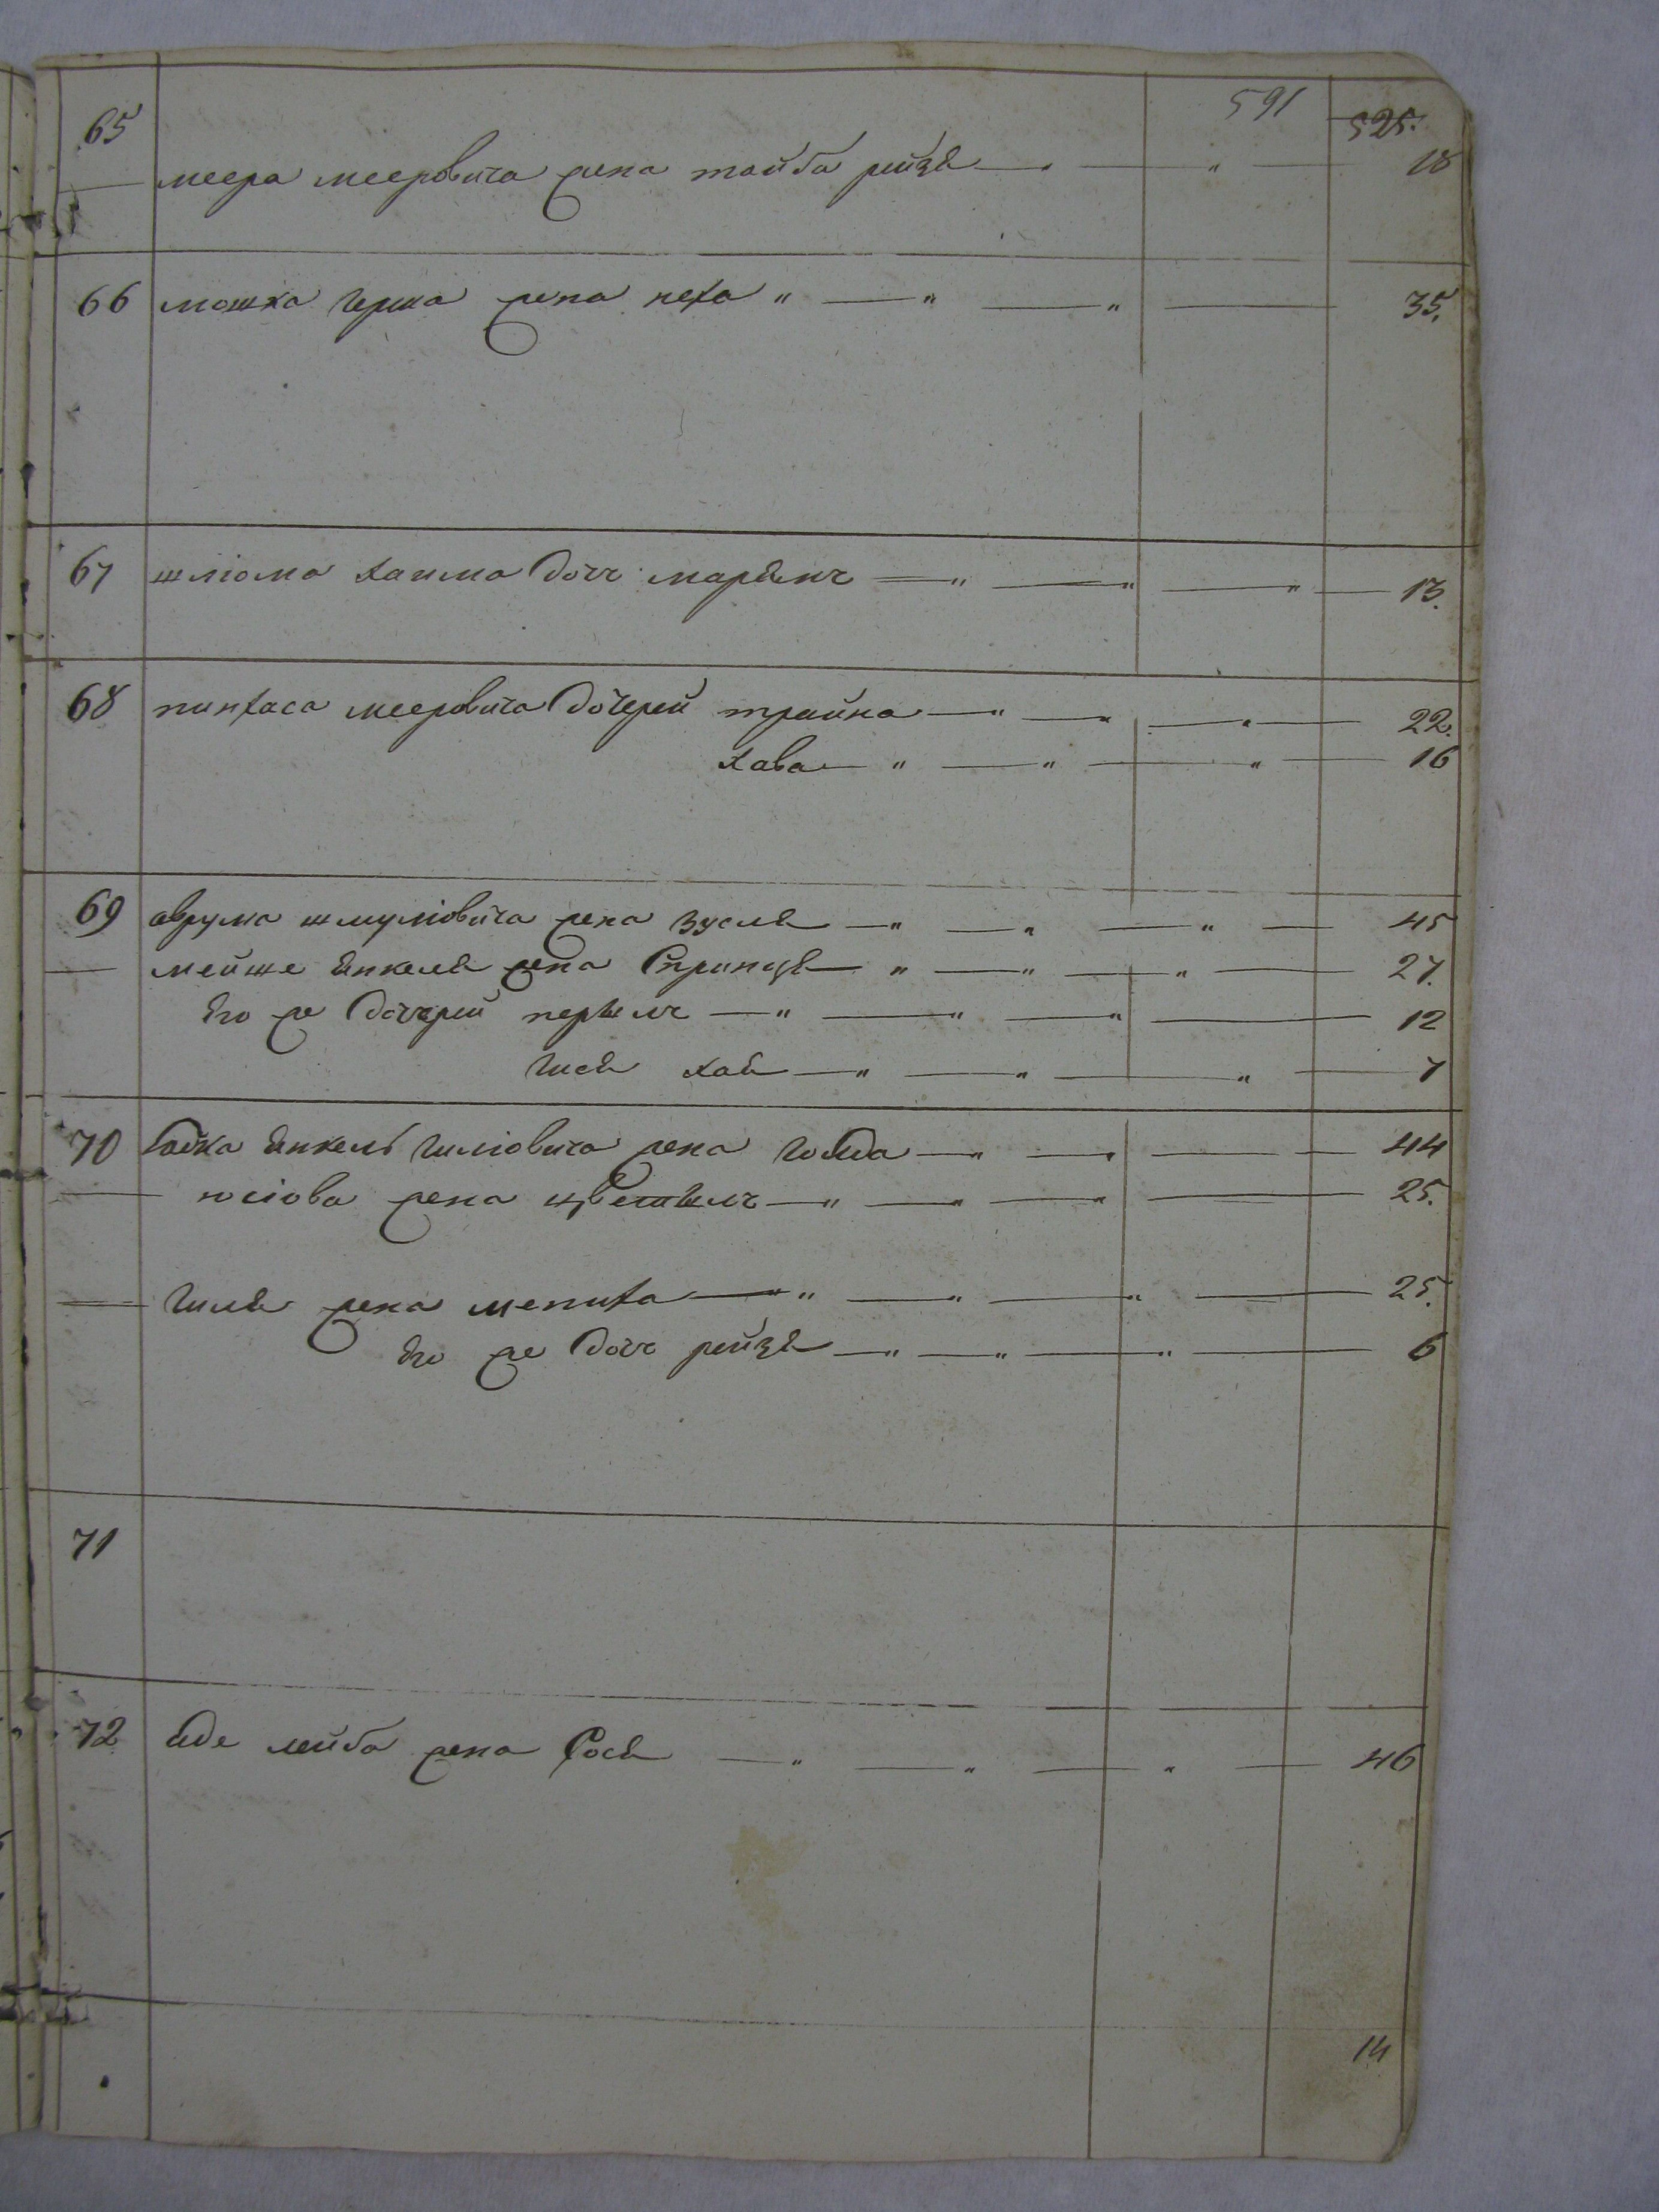 591 525.
65
меера мееровича жена тайба рейзя " 18
66 мошка герша жена неха " " " 35.
67 шліома хаима дочь марьямъ " " " 13.
68 пинхаса мееровича дочерей трайна " " " 22.
хава " " " 16
69 аврума шмуліовича жена зусля " " " 45
мейше янкеля жена Спринця " " " 27.
его же дочерей перлъ " " " 12
хая " " " 7
70 янкель гиліовича жена голда " " 44
жена " " " 25.
гиля жена мениха " " " 25.
его же дочь рейзя " " " 6
71
72 лейба жена Сося " " " 46
14